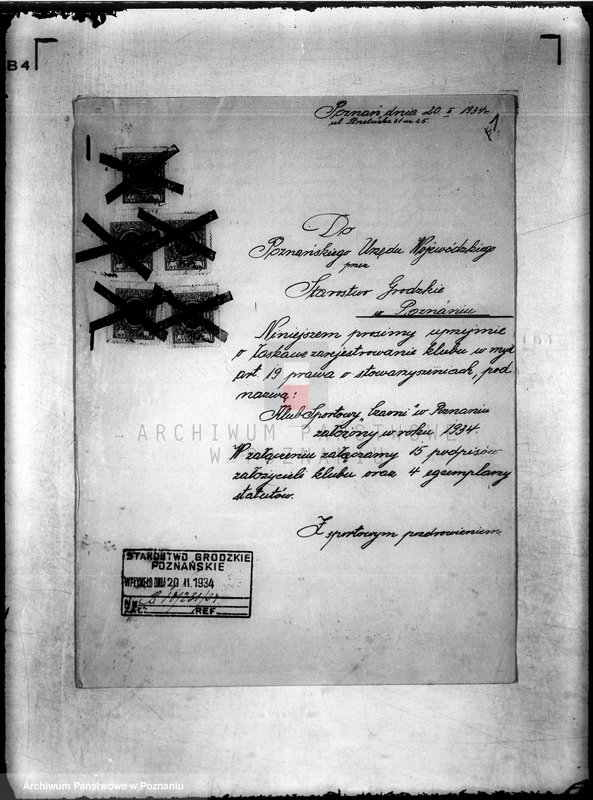 B4
Poznań, dnia 20. II 1934r.
ul. m. 25.
1.
Do
Poznańskiego Urzędu Wojewódzkiego
przez
Starostwo Grodzkie
w Poznaniu
Niniejszem prosimy uprzejmie
o łaskawe zarejestrowanie klubu w myśl
art. 19 prawa o stowarzyszeniach, pod
nazwą:
Klub Sportowy "Czarni" w Poznaniu
założony w roku 1934.
W załączeniu załączamy 15 podpisów
założycieli klubu oraz 4 egzemplarzy
statutów.
Z sportowym pozdrowieniem.
ARCHIWUM PAŃSTWOWE
W POZNANIU
STAROSTWO GRODZKIE
POZNAŃSKIE
WPŁYNĘŁO DNIA 20 II. 1934
NR.
ZAŁ. REF.
Archiwum Państwowe w Poznaniu